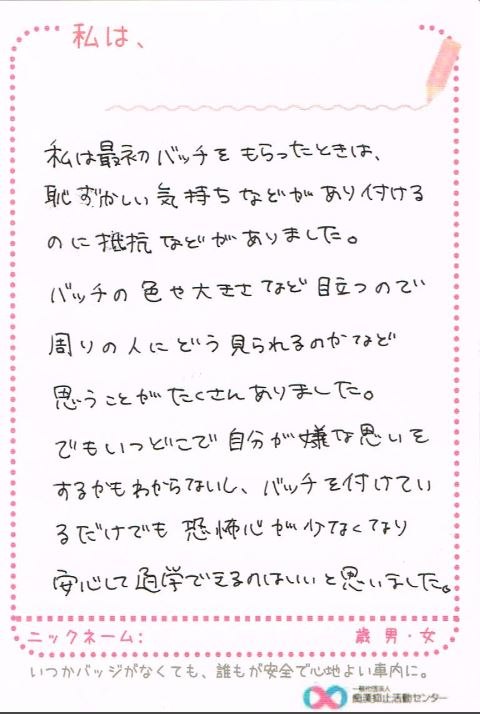 私は、
私は最初バッチをもらったときは、
恥ずかしい気持ちなどがあり付ける
のに抵抗などがありました。
バッチの色や大きさなど目立つので
周りの人にどう見られるのかなど
思うことがたくさんありました。
でもいつどこで自分が嫌な思いを
するかもわからないし、バッチを付けてい
るだけでも恐怖心が少なくなり
安心して通学できるのはいいと思いました。
ニックネーム: 歳 男・女
いつかバッジがなくても、誰もが安全で心地よい車内に。
一般社団法人
痴漢抑止活動センター